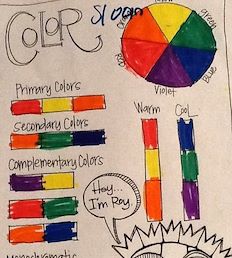 COLOR
green
Red
Blue
Violet
Primary Colors
Secondary Colors
Complementary Colors
Warm
Cool
Hey...
I'm Roy.
Monochromatic